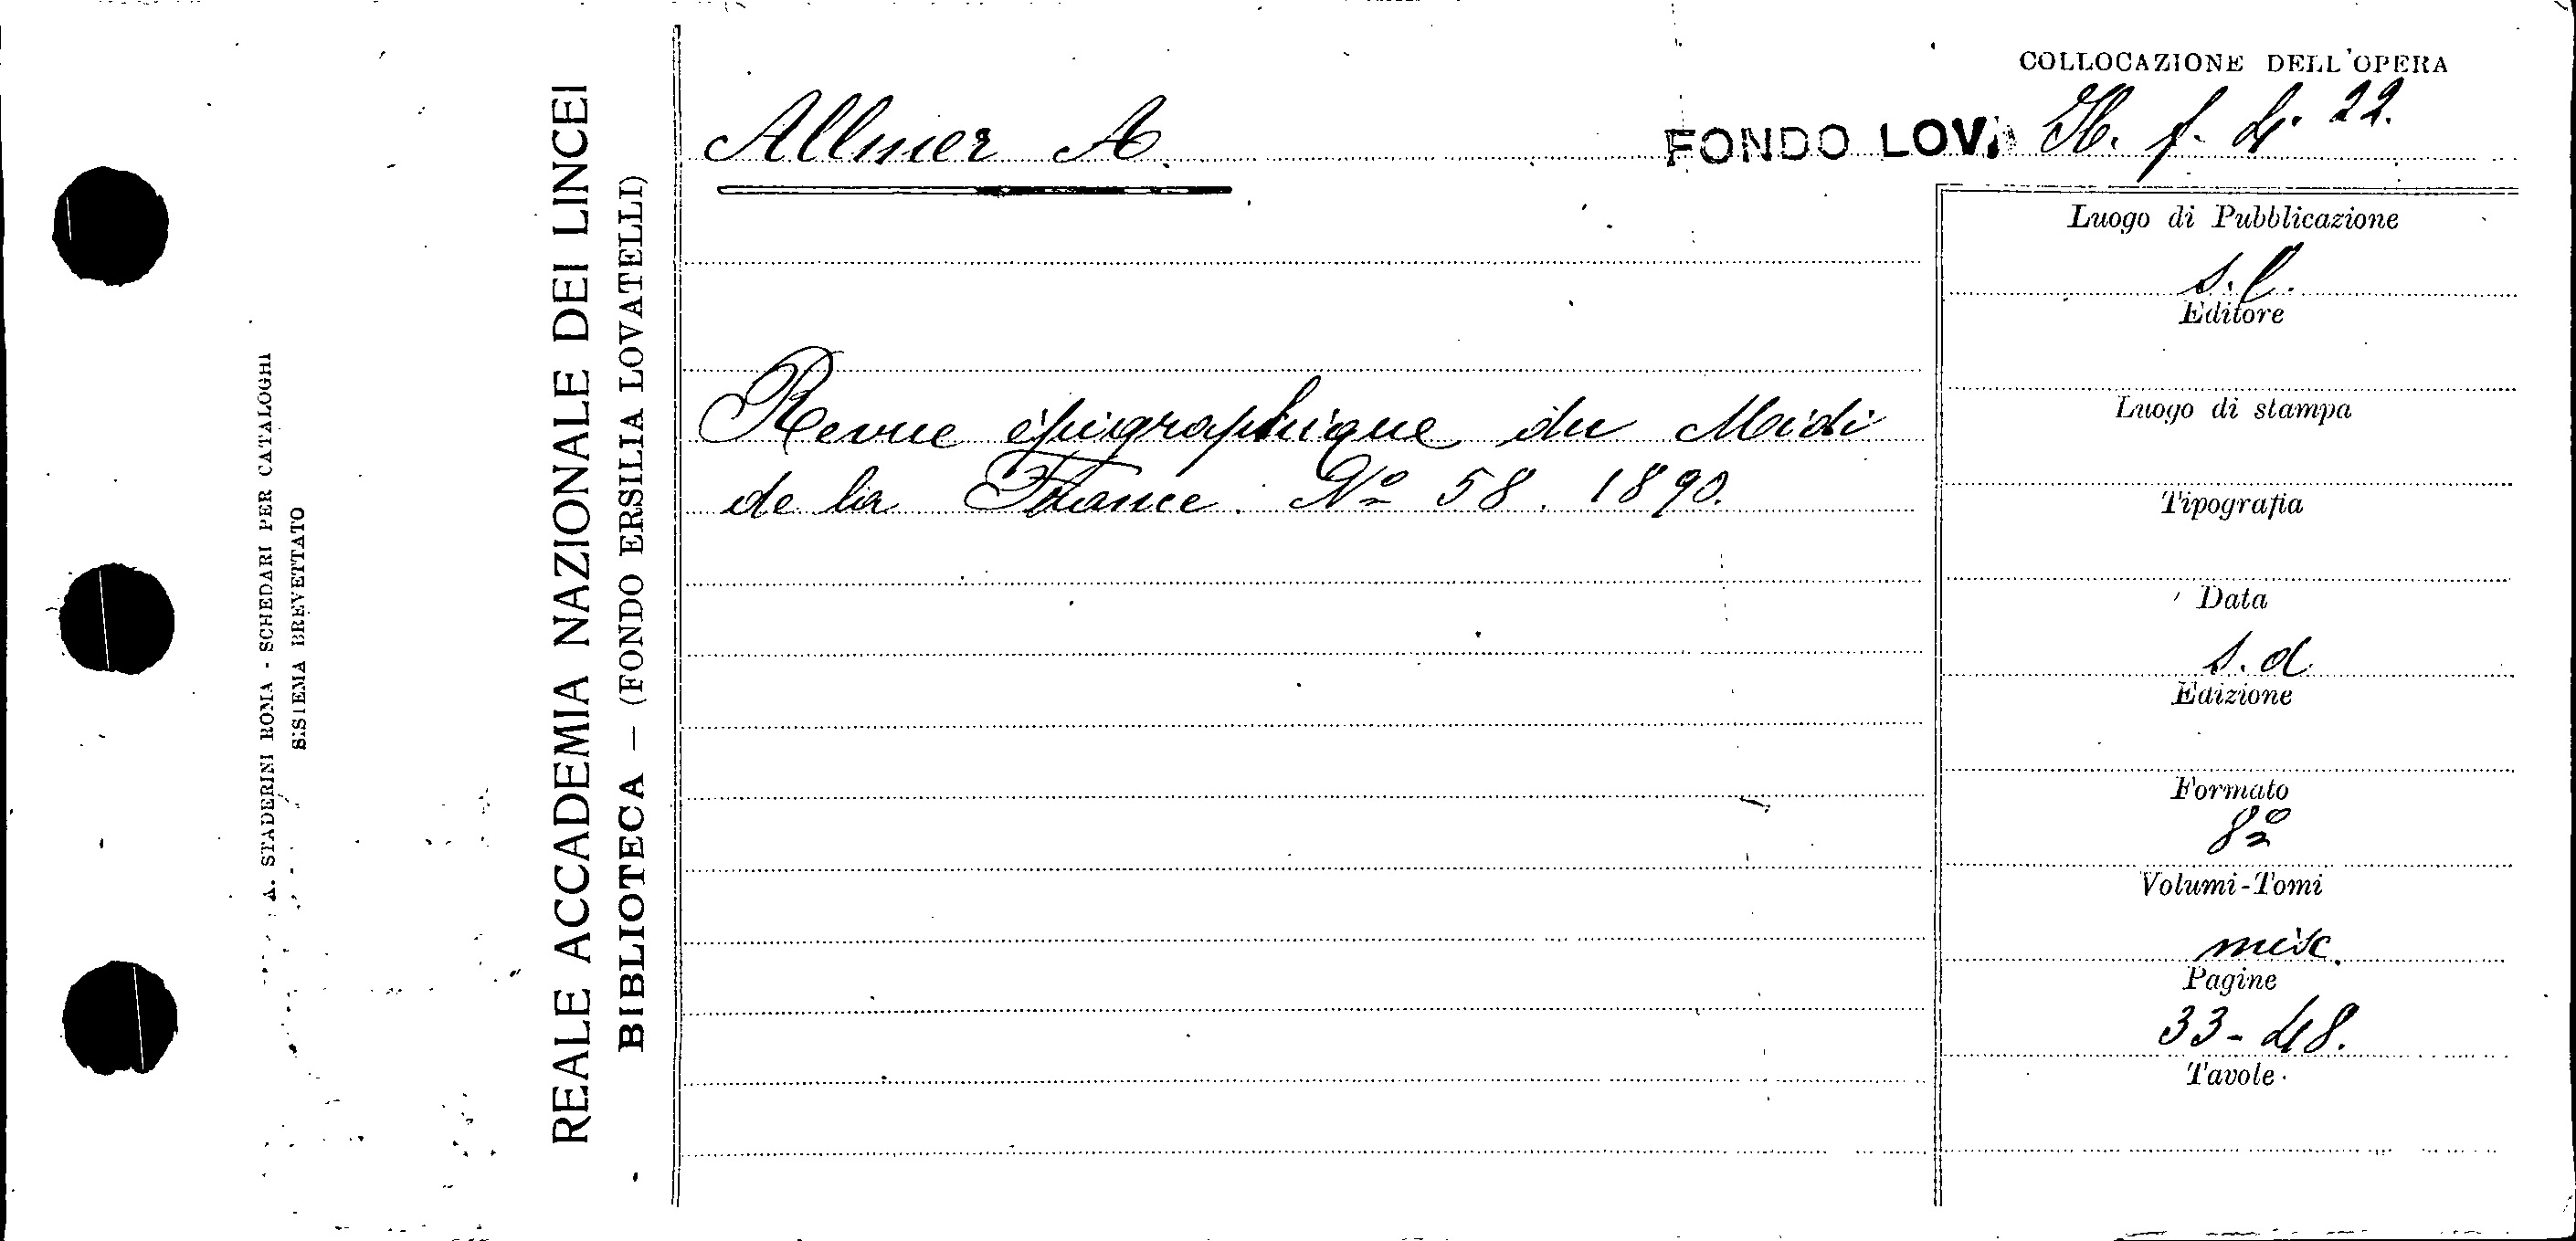 A. STADERINI ROMA - SCHEDARI PER CATALOGHI
SISTEMA BREVETTATO
REALE ACCADEMIA NAZIONALE DEI LINCEI
BIBLIOTECA — (FONDO ERSILIA LOVATELLI)
Allmer A.
Revue épigraphique du Midi
de la France. Nº 58. 1890.
COLLOCAZIONE DELL'OPERA
FONDO LOV. f. 4. 22.
Luogo di Pubblicazione
s.l.
Editore
Luogo di stampa
Tipografia
Data
s.d
Edizione
Formato
8º
Volumi-Tomi
misc.
Pagine
33-48.
Tavole